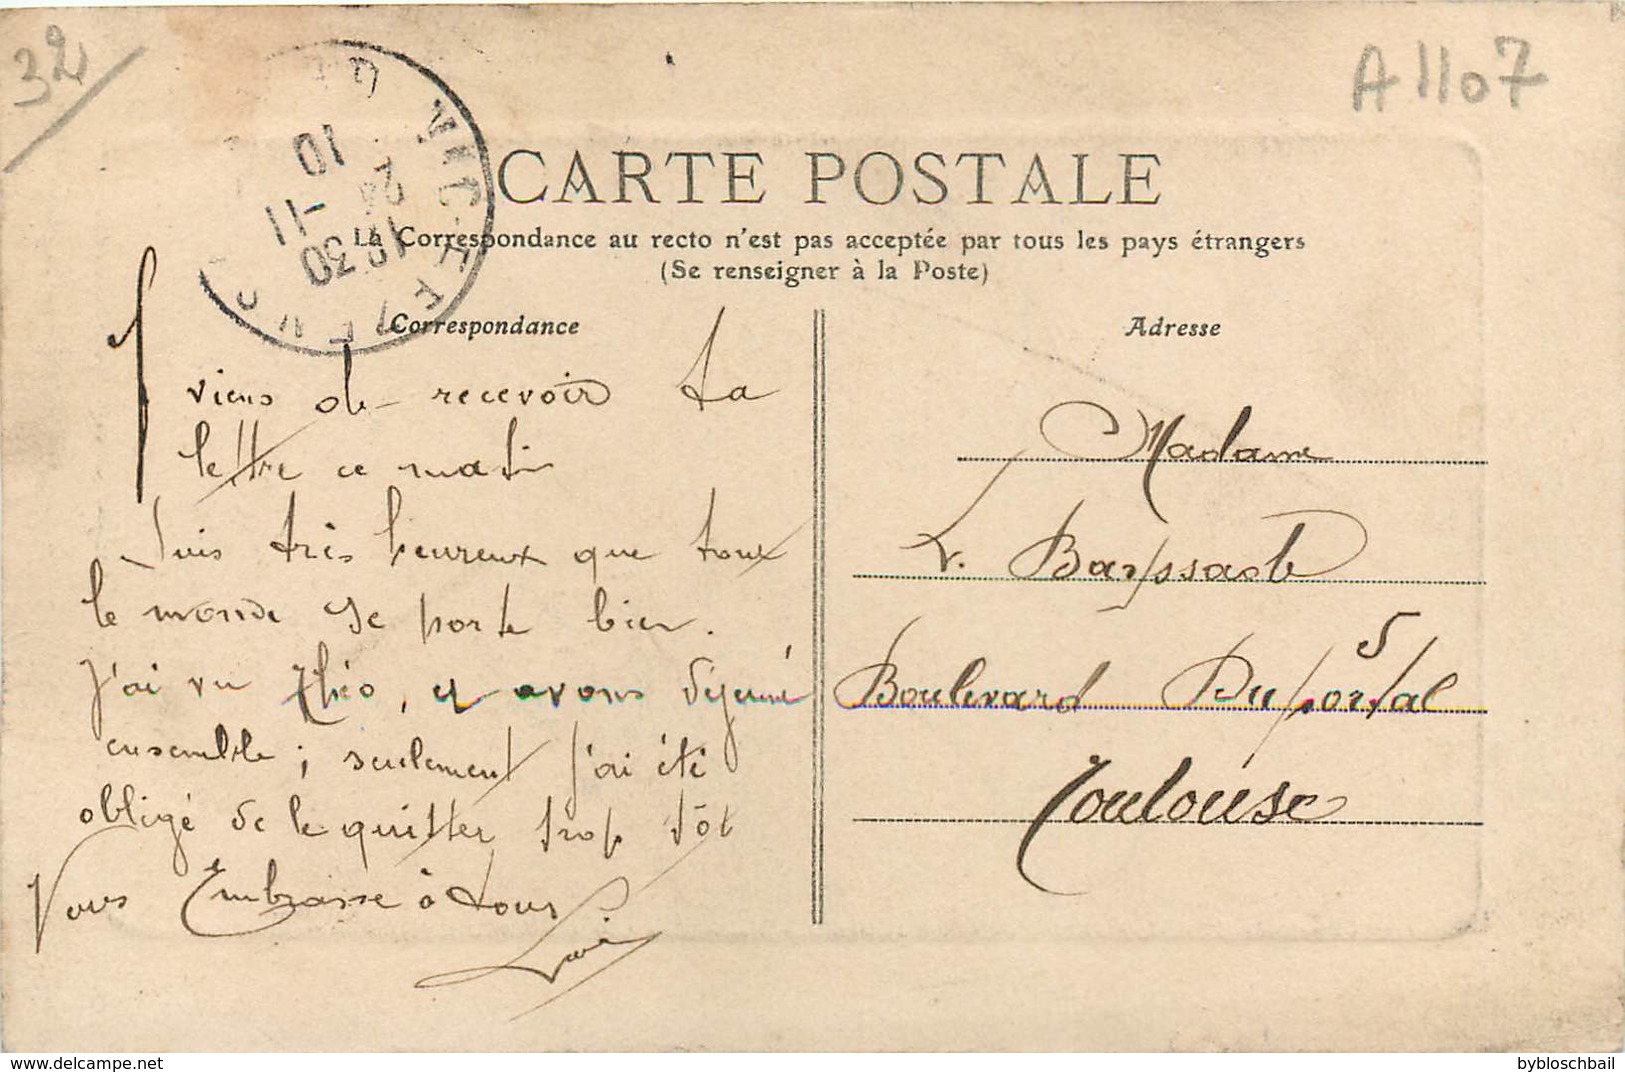 32
A1107
VIC-FEZENSAC
10
24 -11
1030
CARTE POSTALE
La Correspondance au recto n'est pas acceptée par tous les pays étrangers
(Se renseigner à la Poste)
Correspondance
viens de recevoir ta
lettre ce matin
Suis très heureux que tout
le monde se porte bien.
J'ai vu Théo, y avons déjeuné
ensemble; seulement j'ai été
obligé de le quitter trop tôt
Vous Embrasse à tous
Adresse
Madame
V. Barssade
5
Boulevard Duportal
Toulouse
delcampe.net
bybloschbail